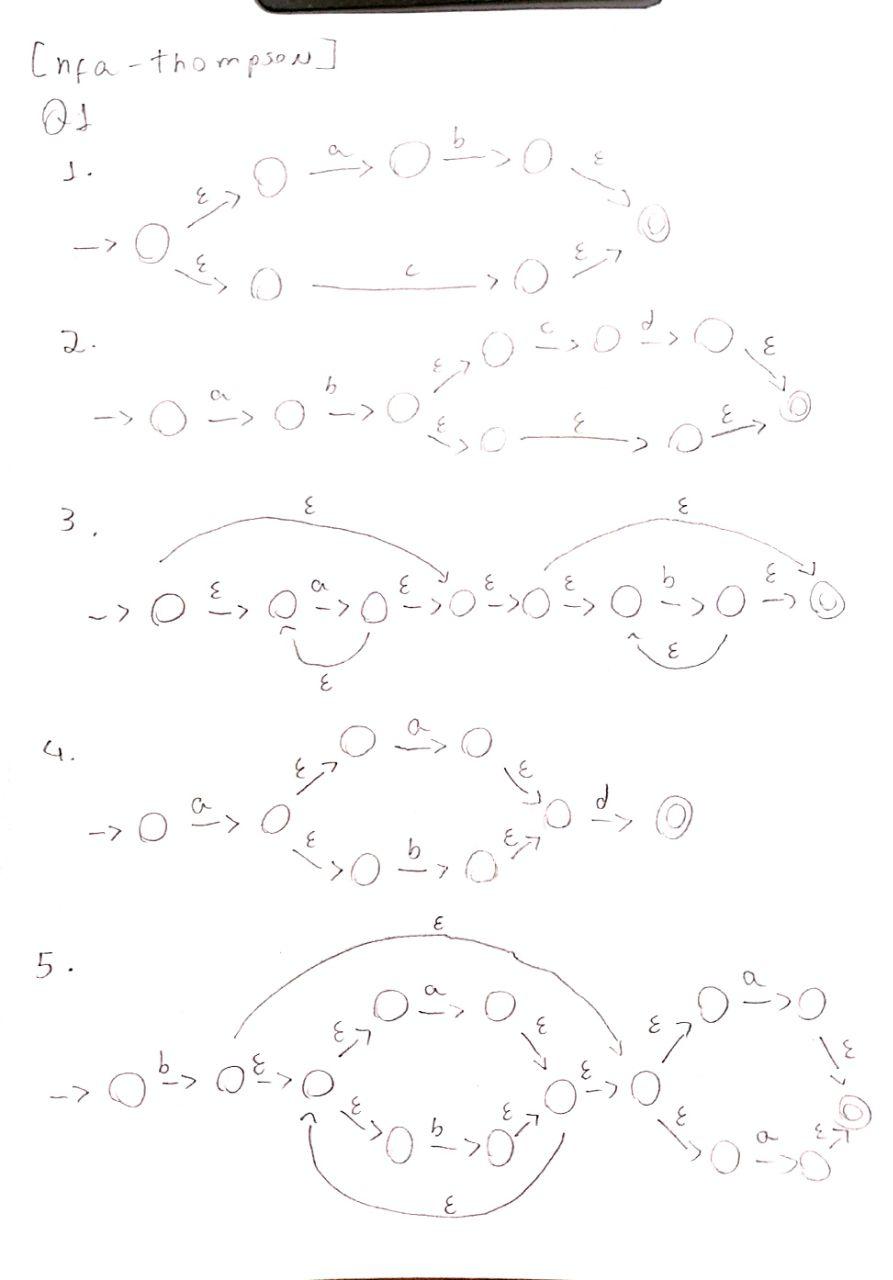 [nfa-thompson]
Q1
1.
ε a b ε
ε c ε
2.
a b ε c d ε
ε ε ε
3.
ε ε
ε a ε ε ε b ε
ε ε
4.
a ε a ε d
ε b ε
5.
ε
b ε ε a ε ε ε a ε
ε b ε ε a ε
ε